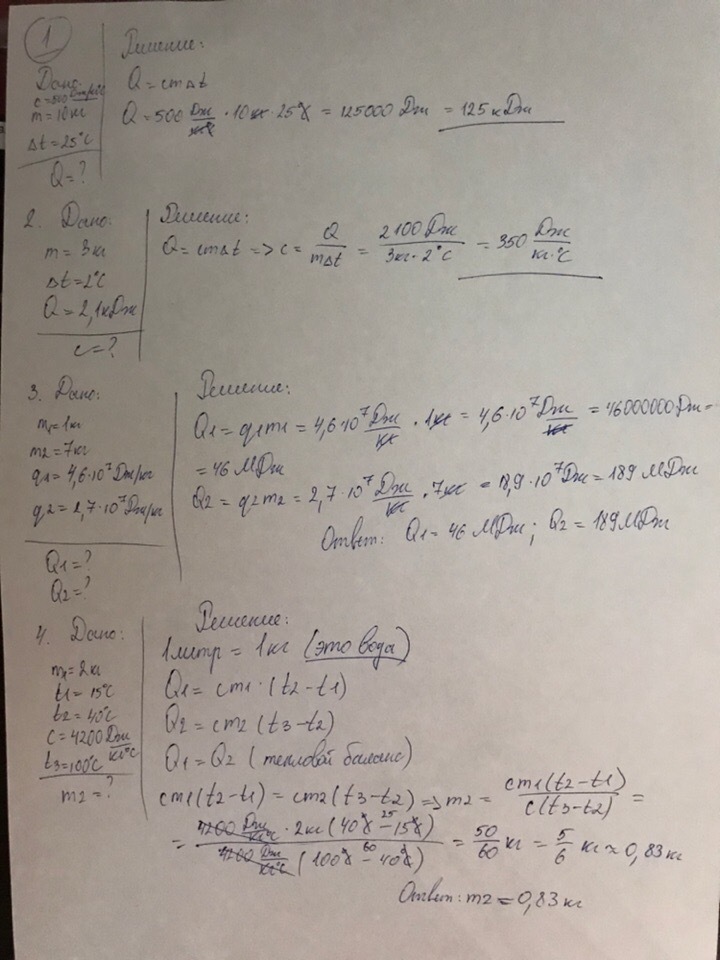 1
Дано:
c=500 Дж/кг°C
m=10кг
Δt=25°C
Q=?
Решение:
Q=cmΔt
Q=500 Дж/кг°C · 10кг · 25°C = 125000 Дж = 125 кДж
2. Дано:
m=3кг
Δt=2°C
Q=2,1кДж
c=?
Решение:
Q=cmΔt => c = Q/mΔt = 2100 Дж/3кг·2°C = 350 Дж/кг·°C
3. Дано:
m1=1кг
m2=7кг
q1=4,6·10⁷Дж/кг
q2=2,7·10⁷Дж/кг
Q1=?
Q2=?
Решение:
Q1=q1m1=4,6·10⁷ Дж/кг · 1кг = 4,6·10⁷ Дж/кг = 46000000Дж=
=46 МДж
Q2=q2m2=2,7·10⁷ Дж/кг · 7кг = 18,9·10⁷Дж=189 МДж
Ответ: Q1=46 МДж; Q2=189МДж
4. Дано:
m1=2кг
t1=15°C
t2=40°C
c=4200 Дж/кг°C
t3=100°C
m2=?
Решение:
1литр=1кг (это вода)
Q1=cm1·(t2-t1)
Q2=cm2(t3-t2)
Q1=Q2 (тепловой баланс)
cm1(t2-t1)=cm2(t3-t2)=>m2= cm1(t2-t1)/c(t3-t2) =
= 4200 Дж/кг°C · 2кг(40°C-15°C) 25/4200 Дж/кг°C (100°C-40°C) 60 = 50/60 кг = 5/6 кг ≈ 0,83кг
Ответ: m2=0,83кг